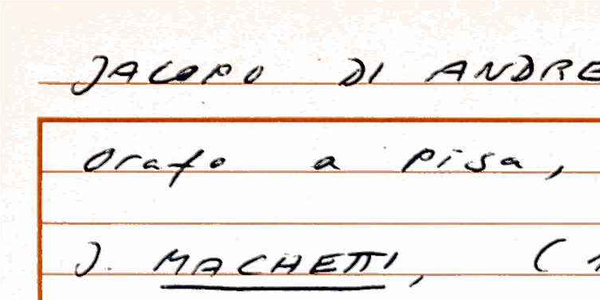 JACOPO DI ANDRE
Orafo a Pisa,
J. MACHETTI, (1